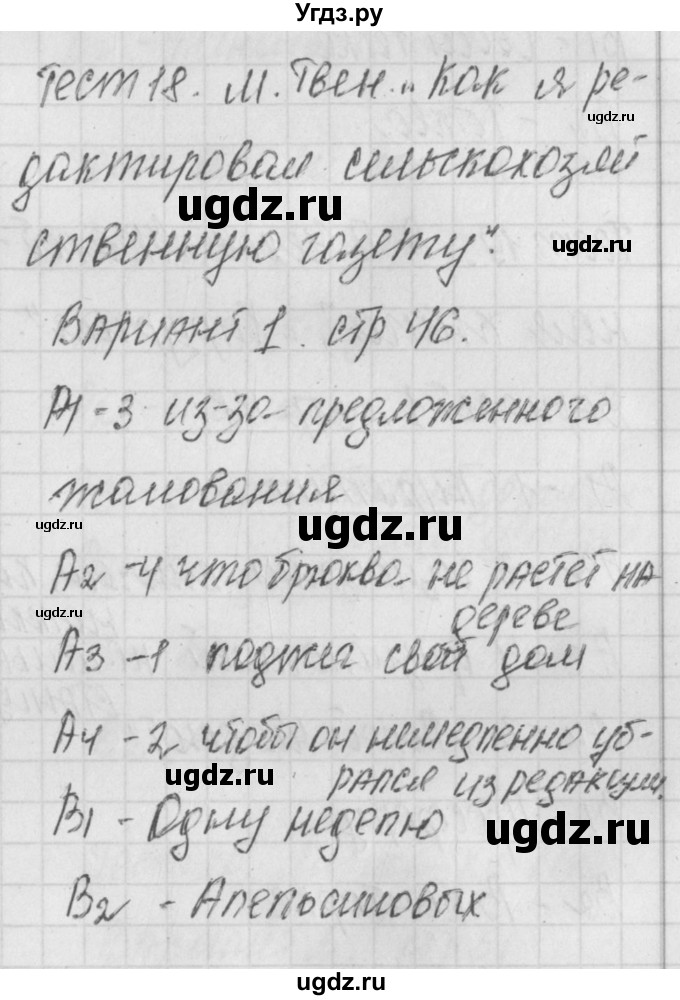 Угдз.ру
Тест 18. М. Твен. „Как я ре-
дактировал сельскохозяй
ственную газету".
Вариант 1. стр 46.
А1 - 3 из-за предложенного
жалования
А2 - 4 что брюква не растет на
дереве
А3 - 1 поджег свой дом
А4 - 2 чтобы он немедленно уб-
рался из редакции.
В1 - Одну неделю
В2 - Апельсиновых
ugdz.ru
ugdz.ru
ugdz.ru
ugdz.ru
ugdz.ru
ugdz.ru
ugdz.ru
ugdz.ru
ugdz.ru
ugdz.ru